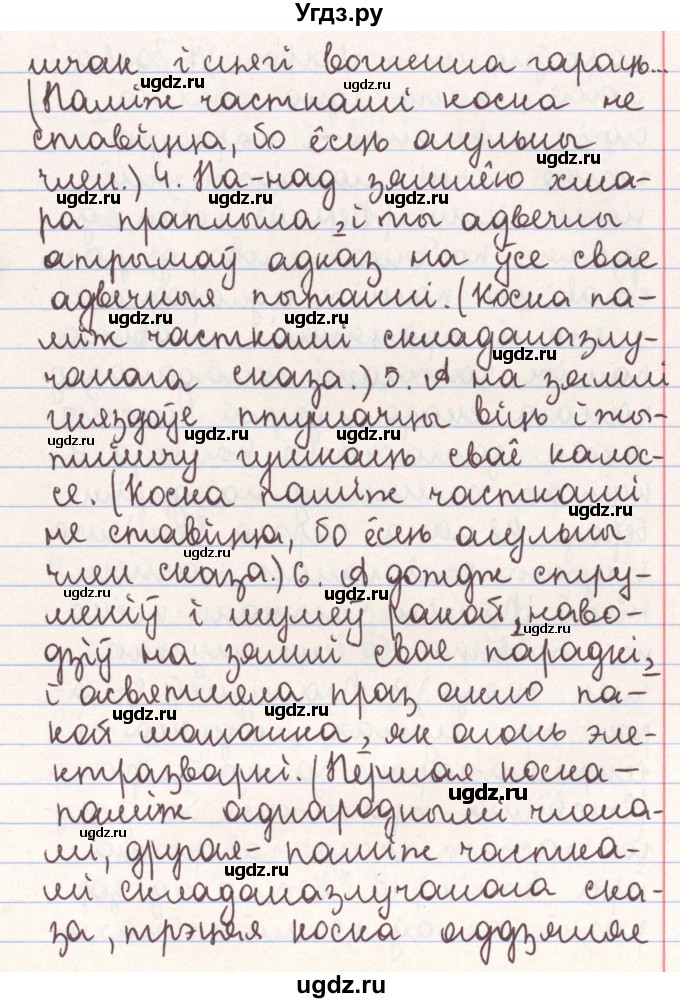 Угдз.ру
шчак і снягі вогненна гараць...
(Паміж часткамі коска не
ставіцца, бо ёсць агульны
член.) 4. Па-над зямлёю хма-
ра праплыла, і ты адвечны
атрымаў адказ на ўсе свае
адвечныя пытанні. (Коска па-
між часткамі складаназлу-
чанага сказа.) 5. А на зямлі
гняздоўе птушачцы віць і жы-
тнішчу гушкаць сваё калос-
се. (Коска паміж часткамі
не ставіцца, бо ёсць агульны
член сказа.) 6. А дождж стру-
меніў і шумеў сабой, наво-
дзіў на зямлі свае парадкі,
і асвятляла праз акно па-
кой маланка, як агонь элe-
ктразваркі. (Першая коска -
паміж аднароднымі члена-
мі, другая - паміж частка-
мі складаназлучанага ска-
за, трэцяя коска аддзяляе
ugdz.ru